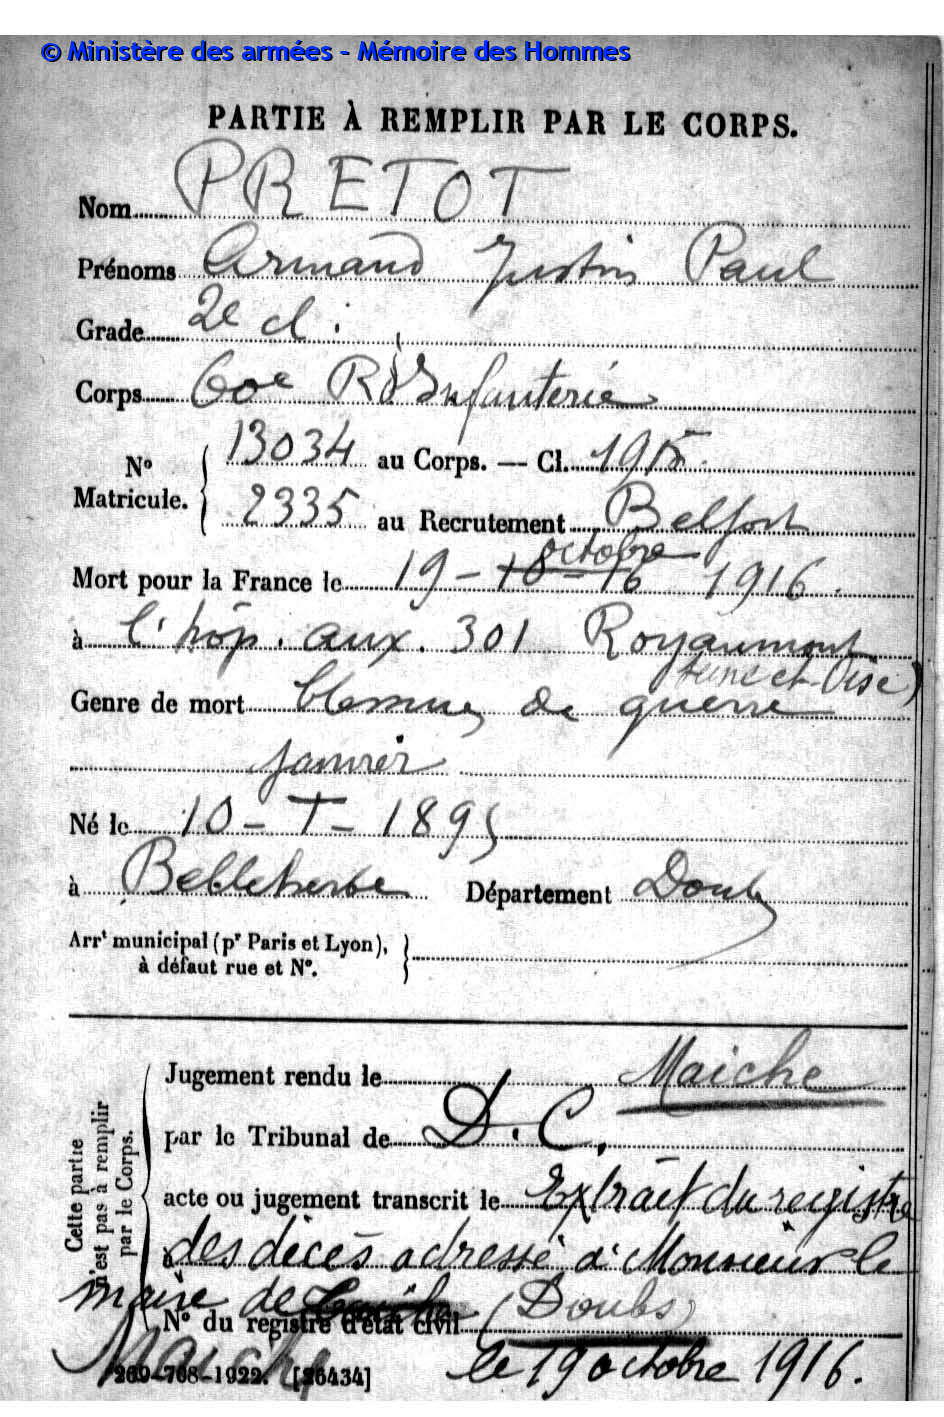 © Ministère des armées - Mémoire des Hommes
PARTIE À REMPLIR PAR LE CORPS.
Nom PRETOT
Prénoms Armand Justin Paul
Grade 2e cl.
Corps 60e R d'Infanterie
N° Matricule. 13034 au Corps. — Cl. 1915.
2335 au Recrutement Belfort
octobre
Mort pour la France le 19 - 10 - 16 1916.
à l'hôp. aux. 301 Royaumont
(Seine et Oise)
Genre de mort blessures de guerre
janvier
Né le 10 - 1 - 1895
à Belleherbe Département Doubs
Arrt municipal (pr Paris et Lyon),
à défaut rue et N°.
Cette partie n'est pas à remplir par le Corps.
Jugement rendu le Maiche
par le Tribunal de D. C.
acte ou jugement transcrit le Extrait du registre
à des décès adressé à Monsieur le
maire de (Doubs)
N° du registre d'état civil
Maiche le 19 octobre 1916.
269-708-1922. [26434]